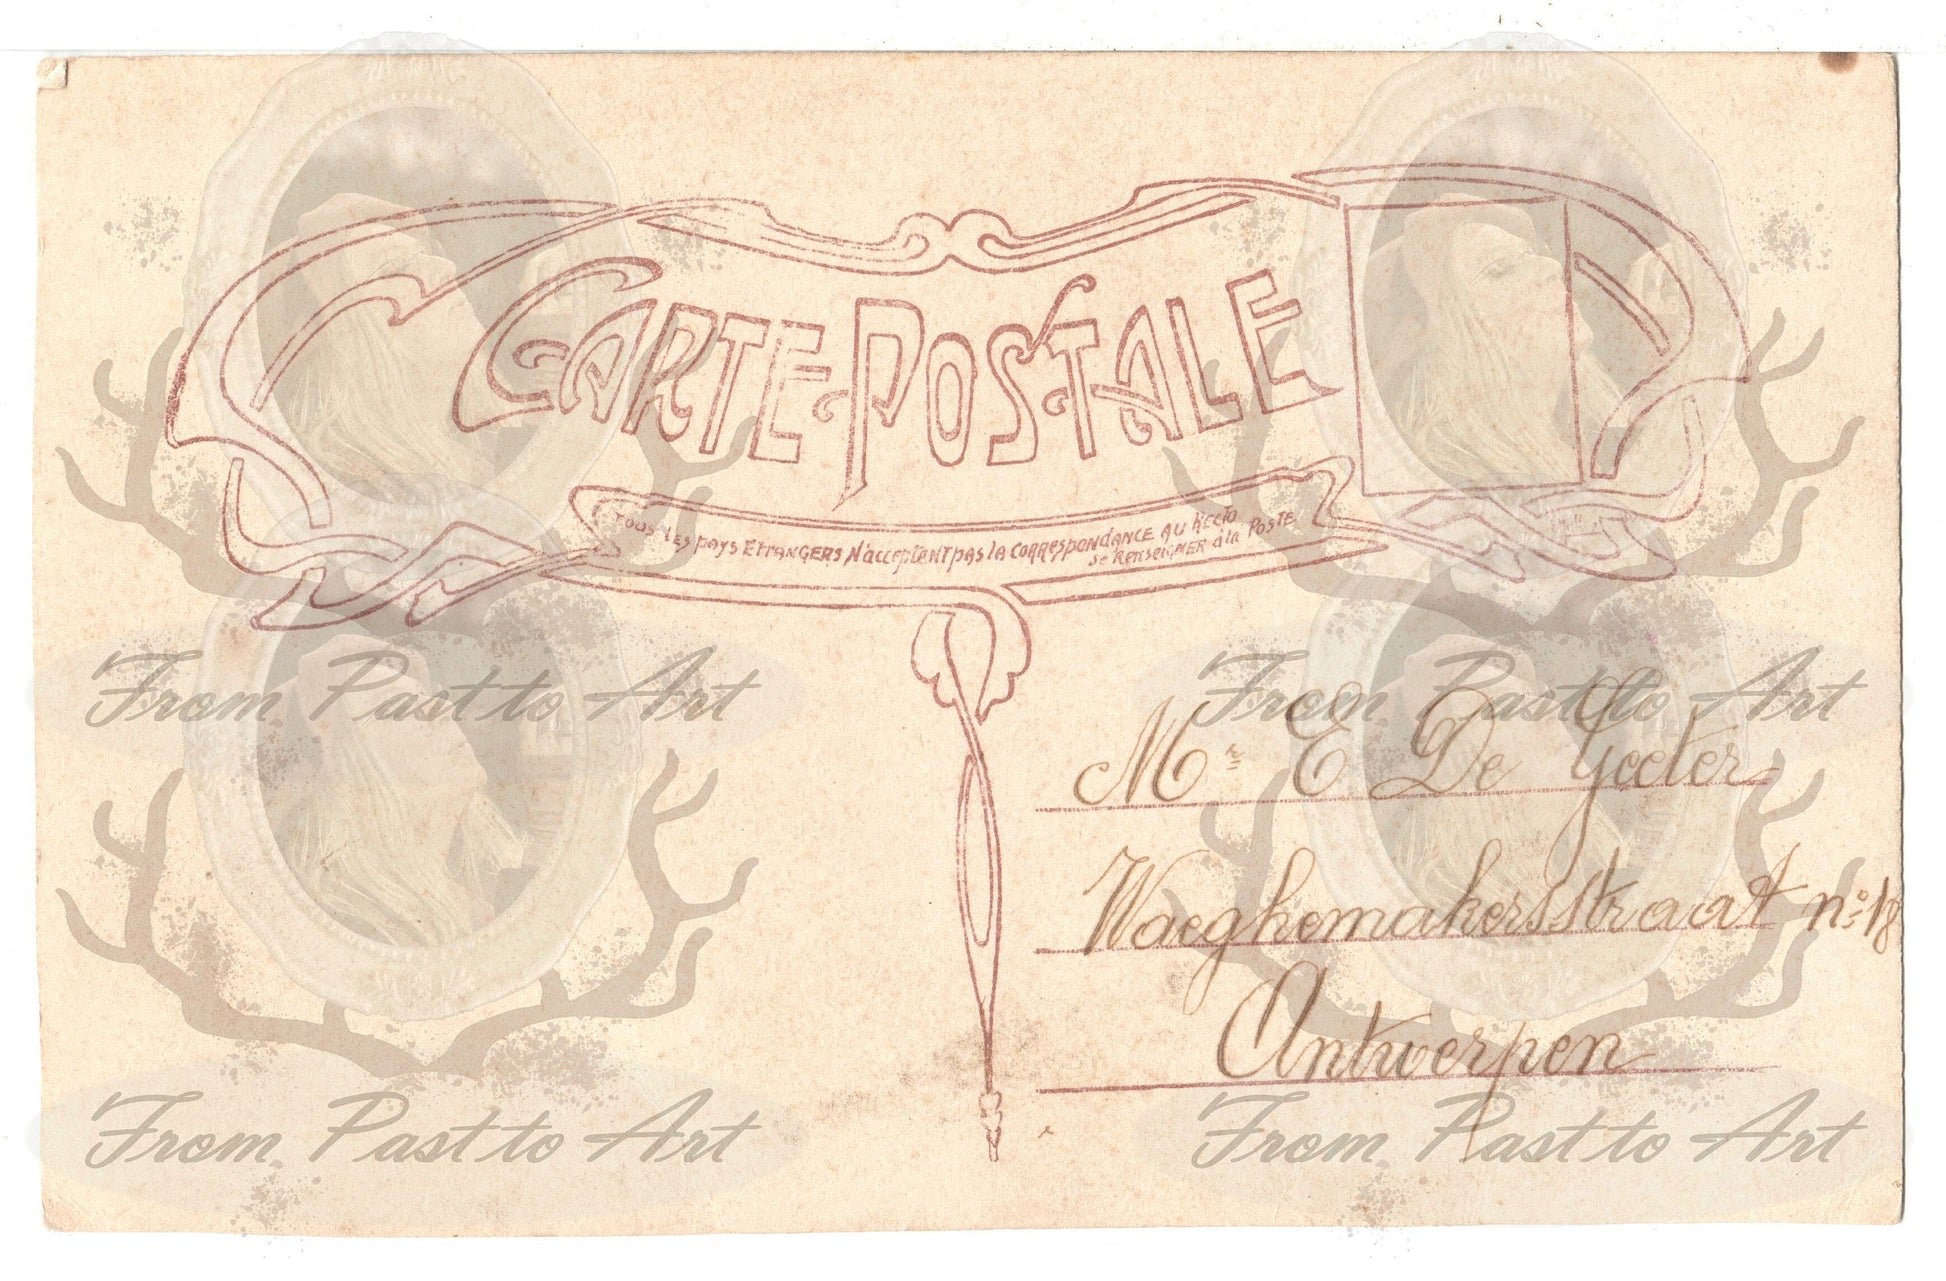 CARTE-POSTALE
TOUS LES PAYS ETRANGERS N'ACCEPTENT PAS LA CORRESPONDANCE AU RECTO
SE RENSEIGNER À LA POSTE
From Past to Art From Past to Art
Mr E De Geeter
Waeghemakersstraat no 18
Antwerpen
From Past to Art From Past to Art